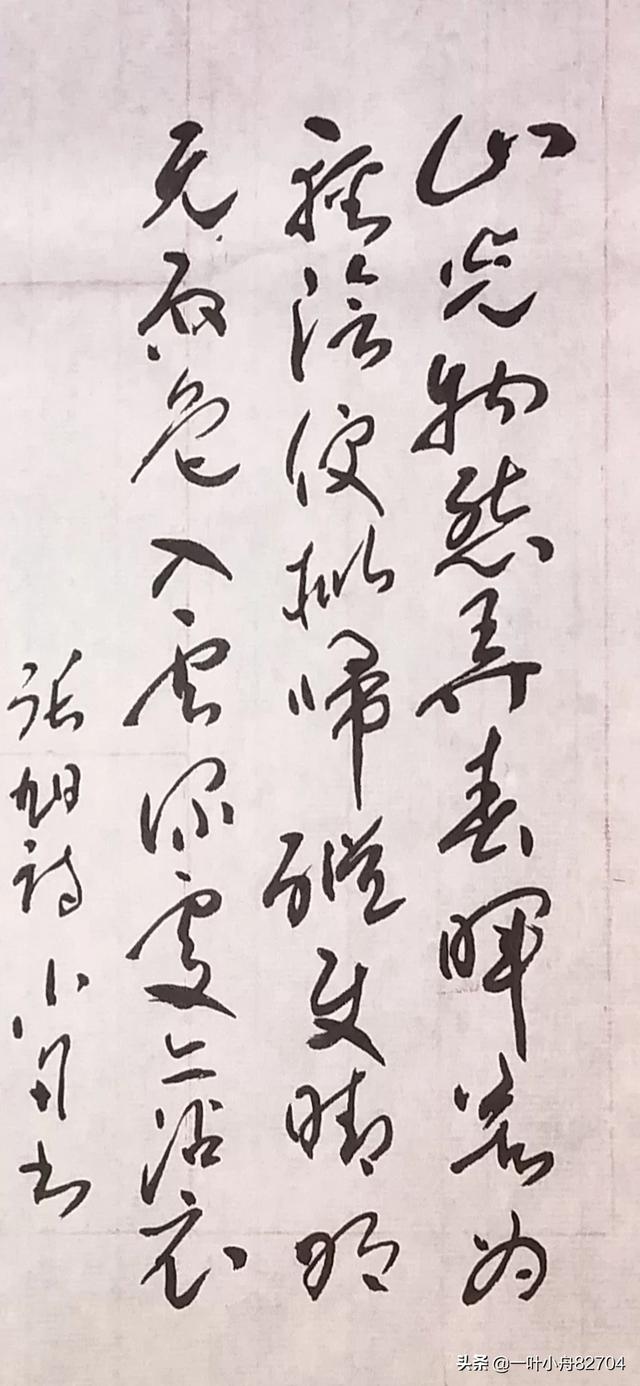 山光物態弄春暉莫为
輕陰便拟歸縱使晴明
无雨色入雲深處亦沾衣
张旭诗小舟书
头条 @一叶小舟82704